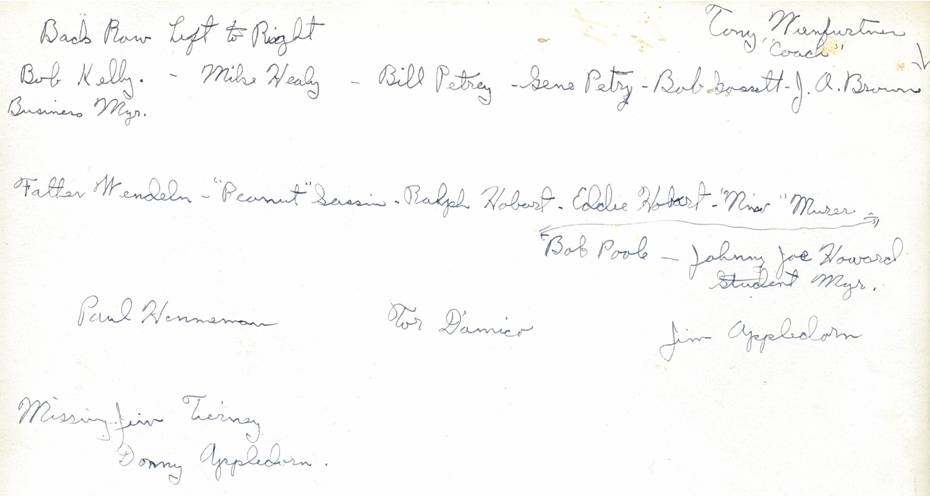 Back Row Left to Right
Tony Wienfurtner
"Coach"
Bob Kelly. - Mike Healy - Bill Petrey - Gene Petry - Bob Gossett - J. A. Brown
Business Mgr.
Father Wendeln - "Peanut" Sassin - Ralph Hobart - Eddie Hobart - "Nino" Murer
Bob Poole - Johnny Joe Howard
Student Mgr.
Paul Henneman Tor D'amico Jim Appledorn
Missing - Jim Tierney
Donny Appledorn.